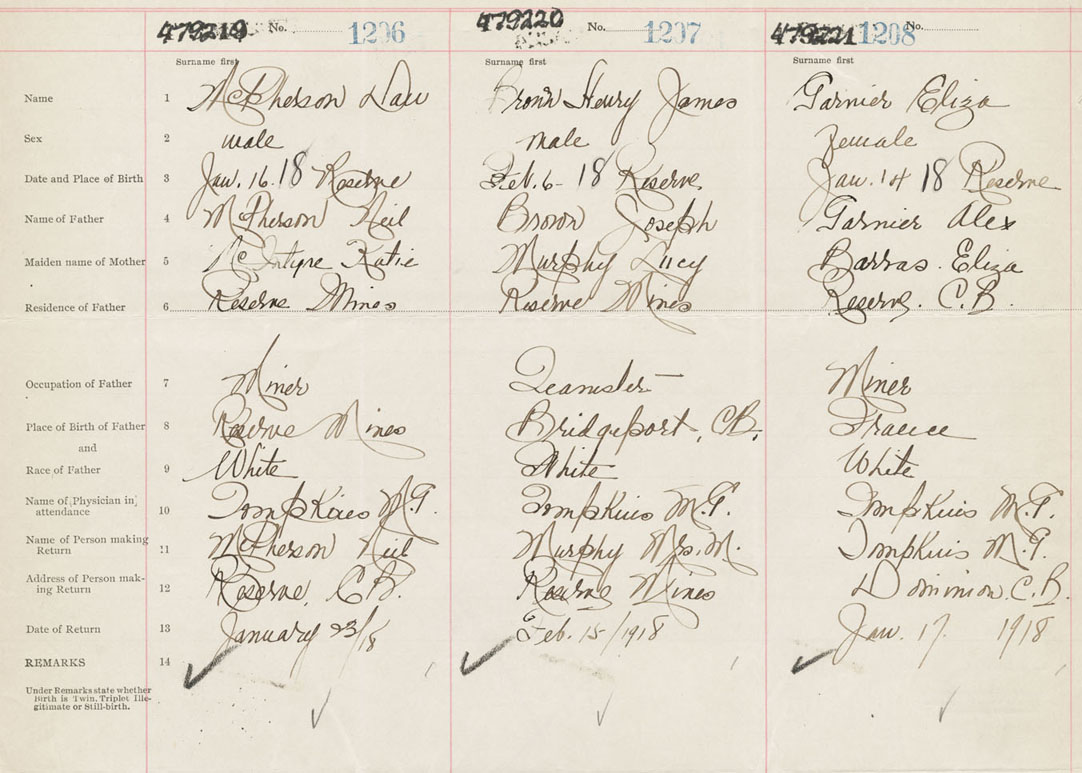 479219 No. 1206 479220 No. 1207 479221 1208 No.
Surname first Surname first Surname first
Name 1 McPherson Dan Brown Henry James Garnier Eliza
Sex 2 male male Female
Date and Place of Birth 3 Jan. 16. 18 Reserve Feb. 6- 18 Reserve Jan. 14 18 Reserve
Name of Father 4 McPherson Neil Brown Joseph Garnier Alex
Maiden name of Mother 5 McIntyre Katie Murphy Lucy Barras. Eliza
Residence of Father 6 Reserve Mines Reserve Mines Reserve. C.B.
Occupation of Father 7 Miner Teamster Miner
Place of Birth of Father 8 Reserve Mines Bridgeport, CB. France
and
Race of Father 9 White White White
Name of Physician in
attendance 10 Tompkins M.T. Tompkins M.T. Tompkins M.T.
Name of Person making
Return 11 McPherson Neil Murphy Mrs. M. Tompkins M.T.
Address of Person mak-
ing Return 12 Reserve, C.B. Reserve Mines Dominion. C.B.
Date of Return 13 January 23/18 Feb. 15/1918 Jan. 17. 1918
REMARKS 14
Under Remarks state whether
Birth is Twin, Triplet Ille-
gitimate or Still-birth.